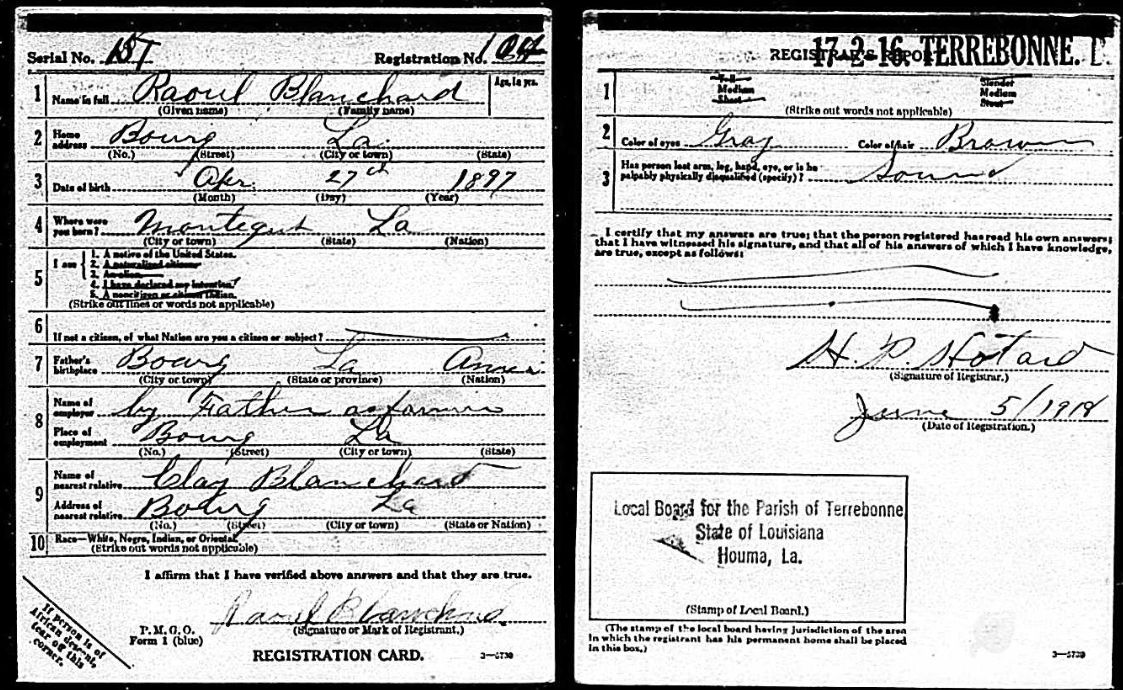 Serial No. 157 Registration No. 104
1 Name in full Raoul Blanchard Age, in yrs.
(Given name) (Family name)
2 Home address Bourg La.
(No.) (Street) (City or town) (State)
3 Date of birth Apr. 27th 1897
(Month) (Day) (Year)
4 Where were you born? Montegut La
(City or town) (State) (Nation)
5 I am
1. A native of the United States.
2. A naturalized citizen
3. An alien.
4. I have declared my intention.
5. A noncitizen or citizen Indian.
(Strike out lines or words not applicable)
6 If not a citizen, of what Nation are you a citizen or subject?
7 Father's birthplace Bourg La
(City or town) (State or province) (Nation)
8 Name of employer by Father as
Place of employment Bourg La
(No.) (Street) (City or town) (State)
9 Name of nearest relative Clay Blanchard
Address of nearest relative Bourg La
(No.) (Street) (City or town) (State or Nation)
10 Race—White, Negro, Indian, or Oriental
(Strike out words not applicable)
I affirm that I have verified above answers and that they are true.
Raoul Blanchard
P. M. G. O.
Form 1 (blue)
(Signature or Mark of Registrant.)
REGISTRATION CARD.
3—5739
If person is of
African descent,
tear off this
corner.
REGISTRAR'S REPORT
17-2-16. TERREBONNE.
1 Tall Medium Short Slender Medium Stout
(Strike out words not applicable)
2 Color of eyes Gray Color of hair Brown
3 Has person lost arm, leg, hand, eye, or is he palpably physically disqualified (specify)? Sound
I certify that my answers are true; that the person registered has read his own answers;
that I have witnessed his signature, and that all of his answers of which I have knowledge,
are true, except as follows:
H. P. Hotard
(Signature of Registrar.)
June 5/1918
(Date of Registration.)
Local Board for the Parish of Terrebonne
State of Louisiana
Houma, La.
(Stamp of Local Board.)
(The stamp of the local board having jurisdiction of the area
in which the registrant has his permanent home shall be placed
in this box.)
3—5739